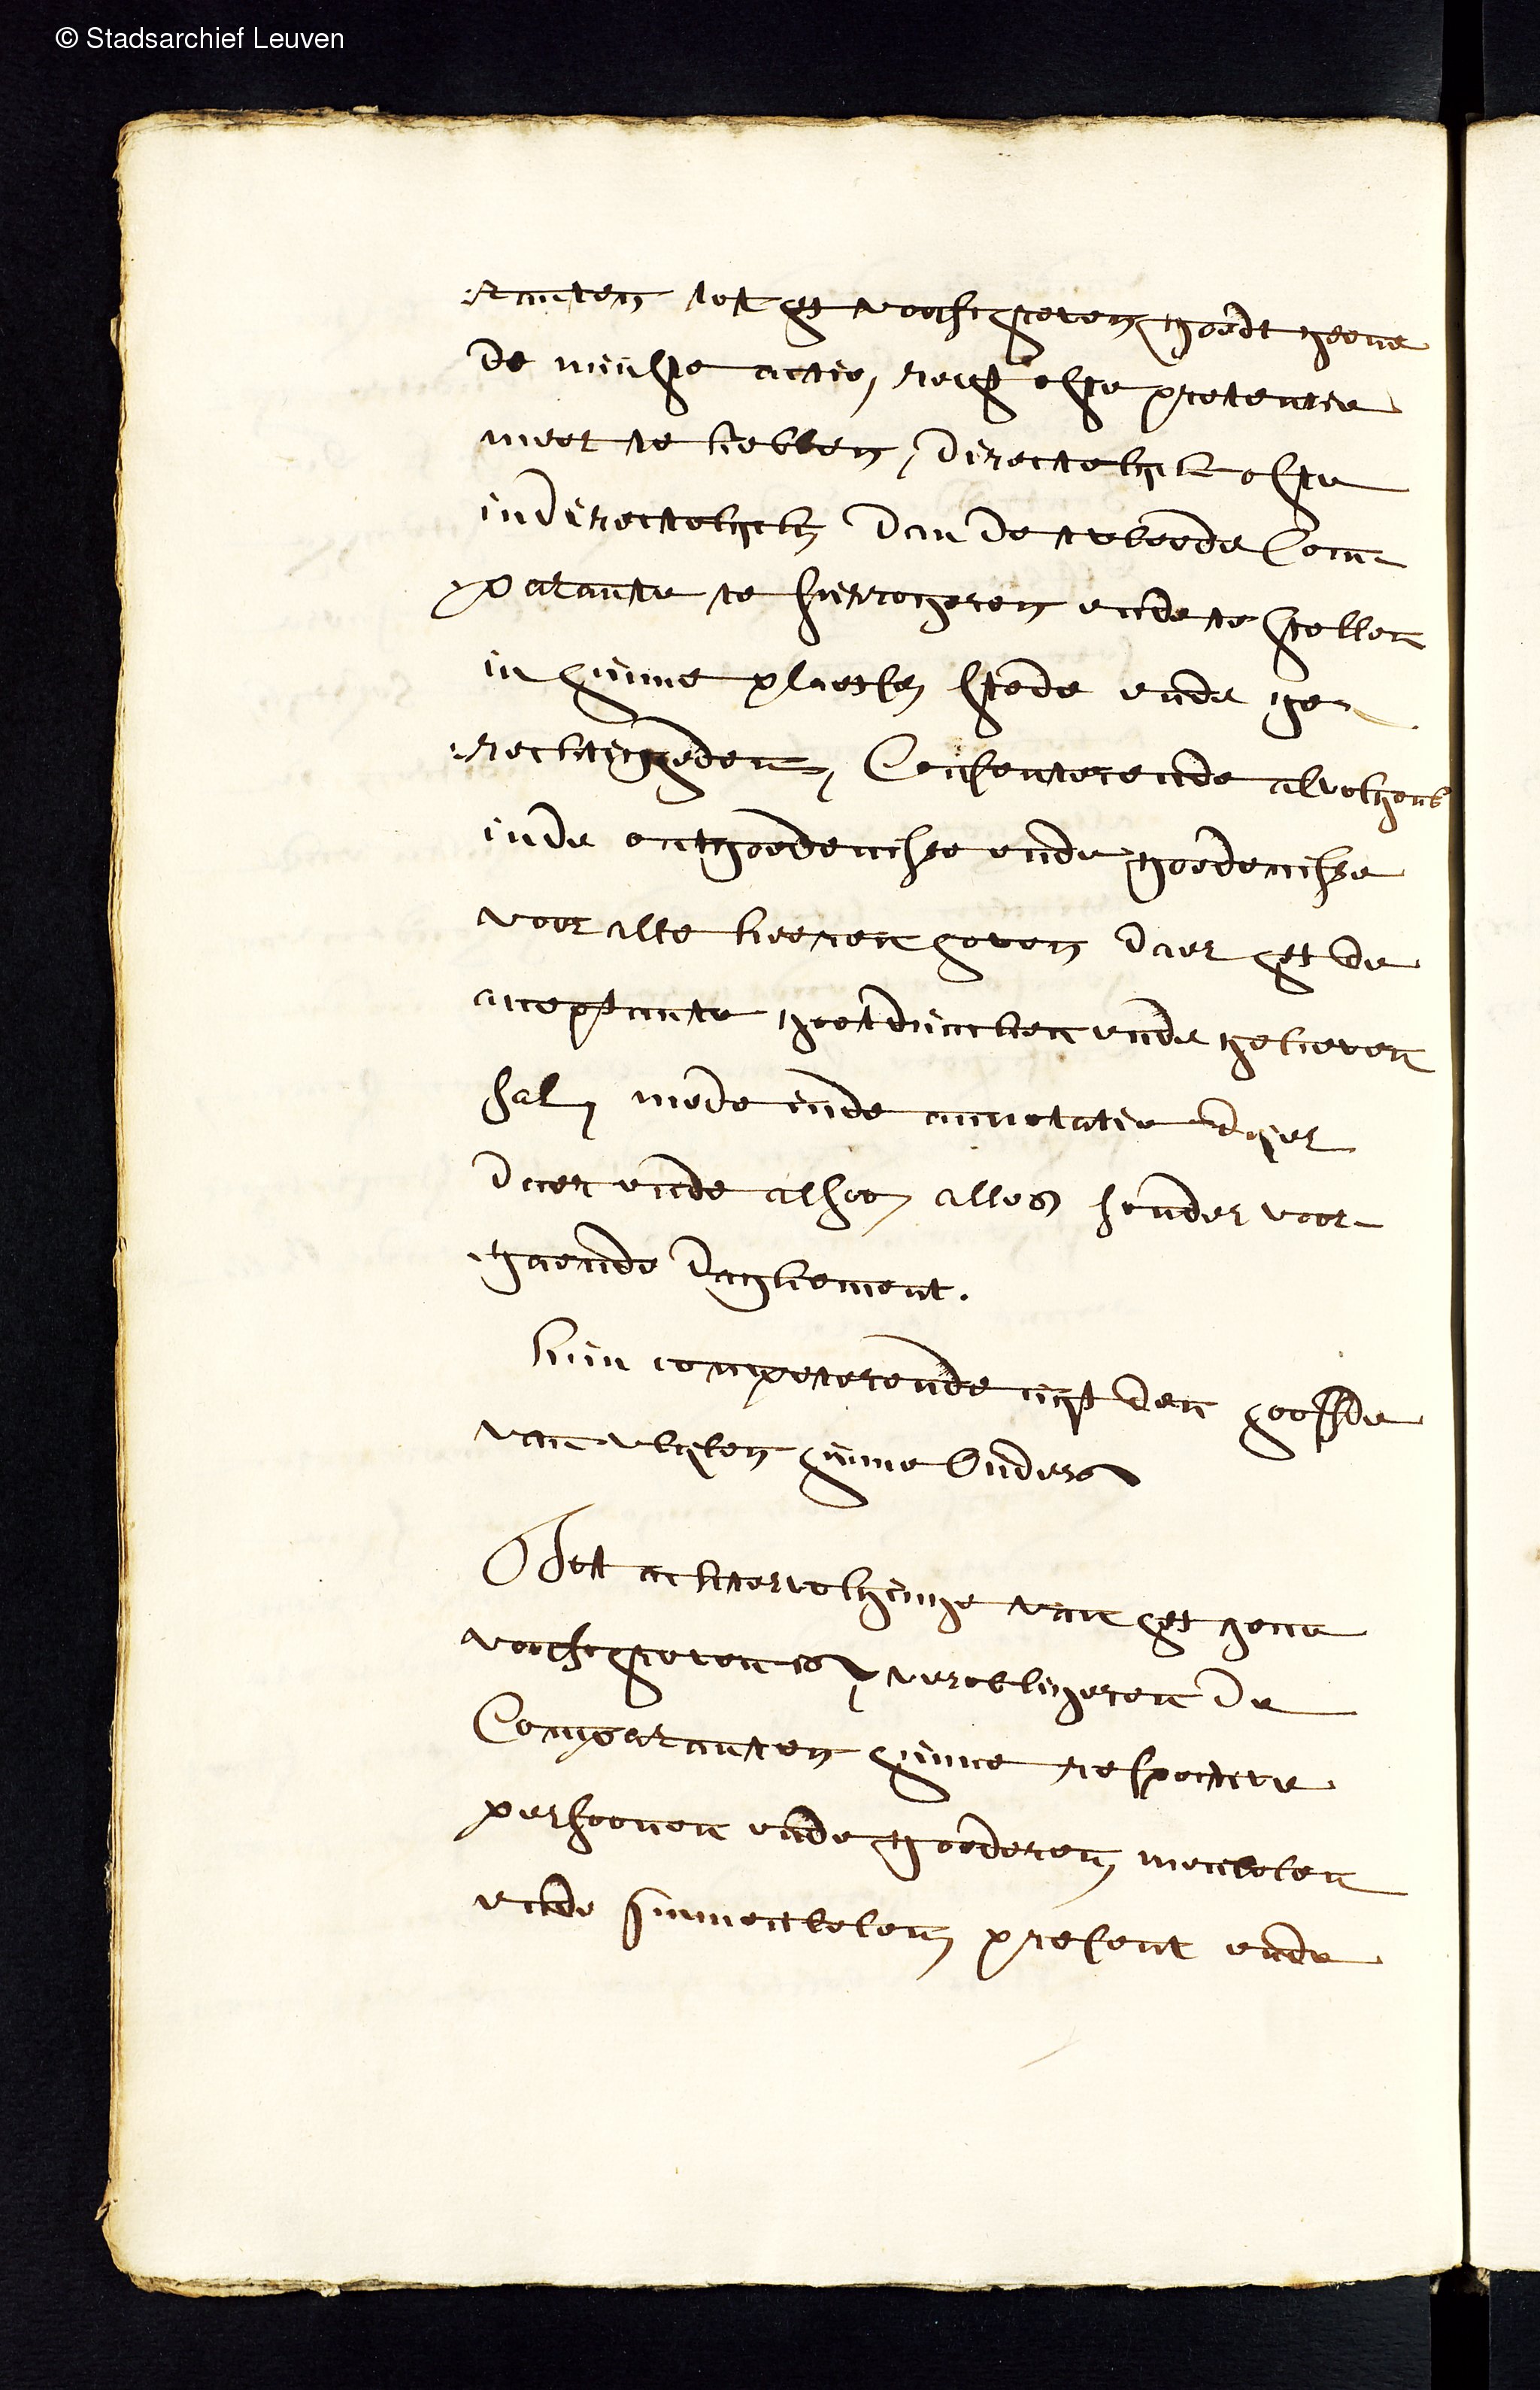 © Stadsarchief Leuven
ranten tot het voorschreven goedt geene
de minste actie, recht ofte pretentie
meer te hebben, directelyck ofte
indirectelyck dan de tweede Com-
parante te surrogeren ende te stellen
in hunne plaetse stede ende ge-
rechticheden, Consenterende alvolgens
inde ontgoedenisse ende goedenisse
voor alle heeren hoven daer het de
acceptante goetduncken ende gelieven
sal, mede inde annotatie
daer ende alsoo alles sonder voor-
gaende daghement.
hun competerende uyt den hoofde
van wylen hunne Ouders
Tot achtervolginge van het gene
voorschreven is, verobligeren de
Comparanten hunne respective
persoonen ende goederen meubelen
ende immeubelen present ende